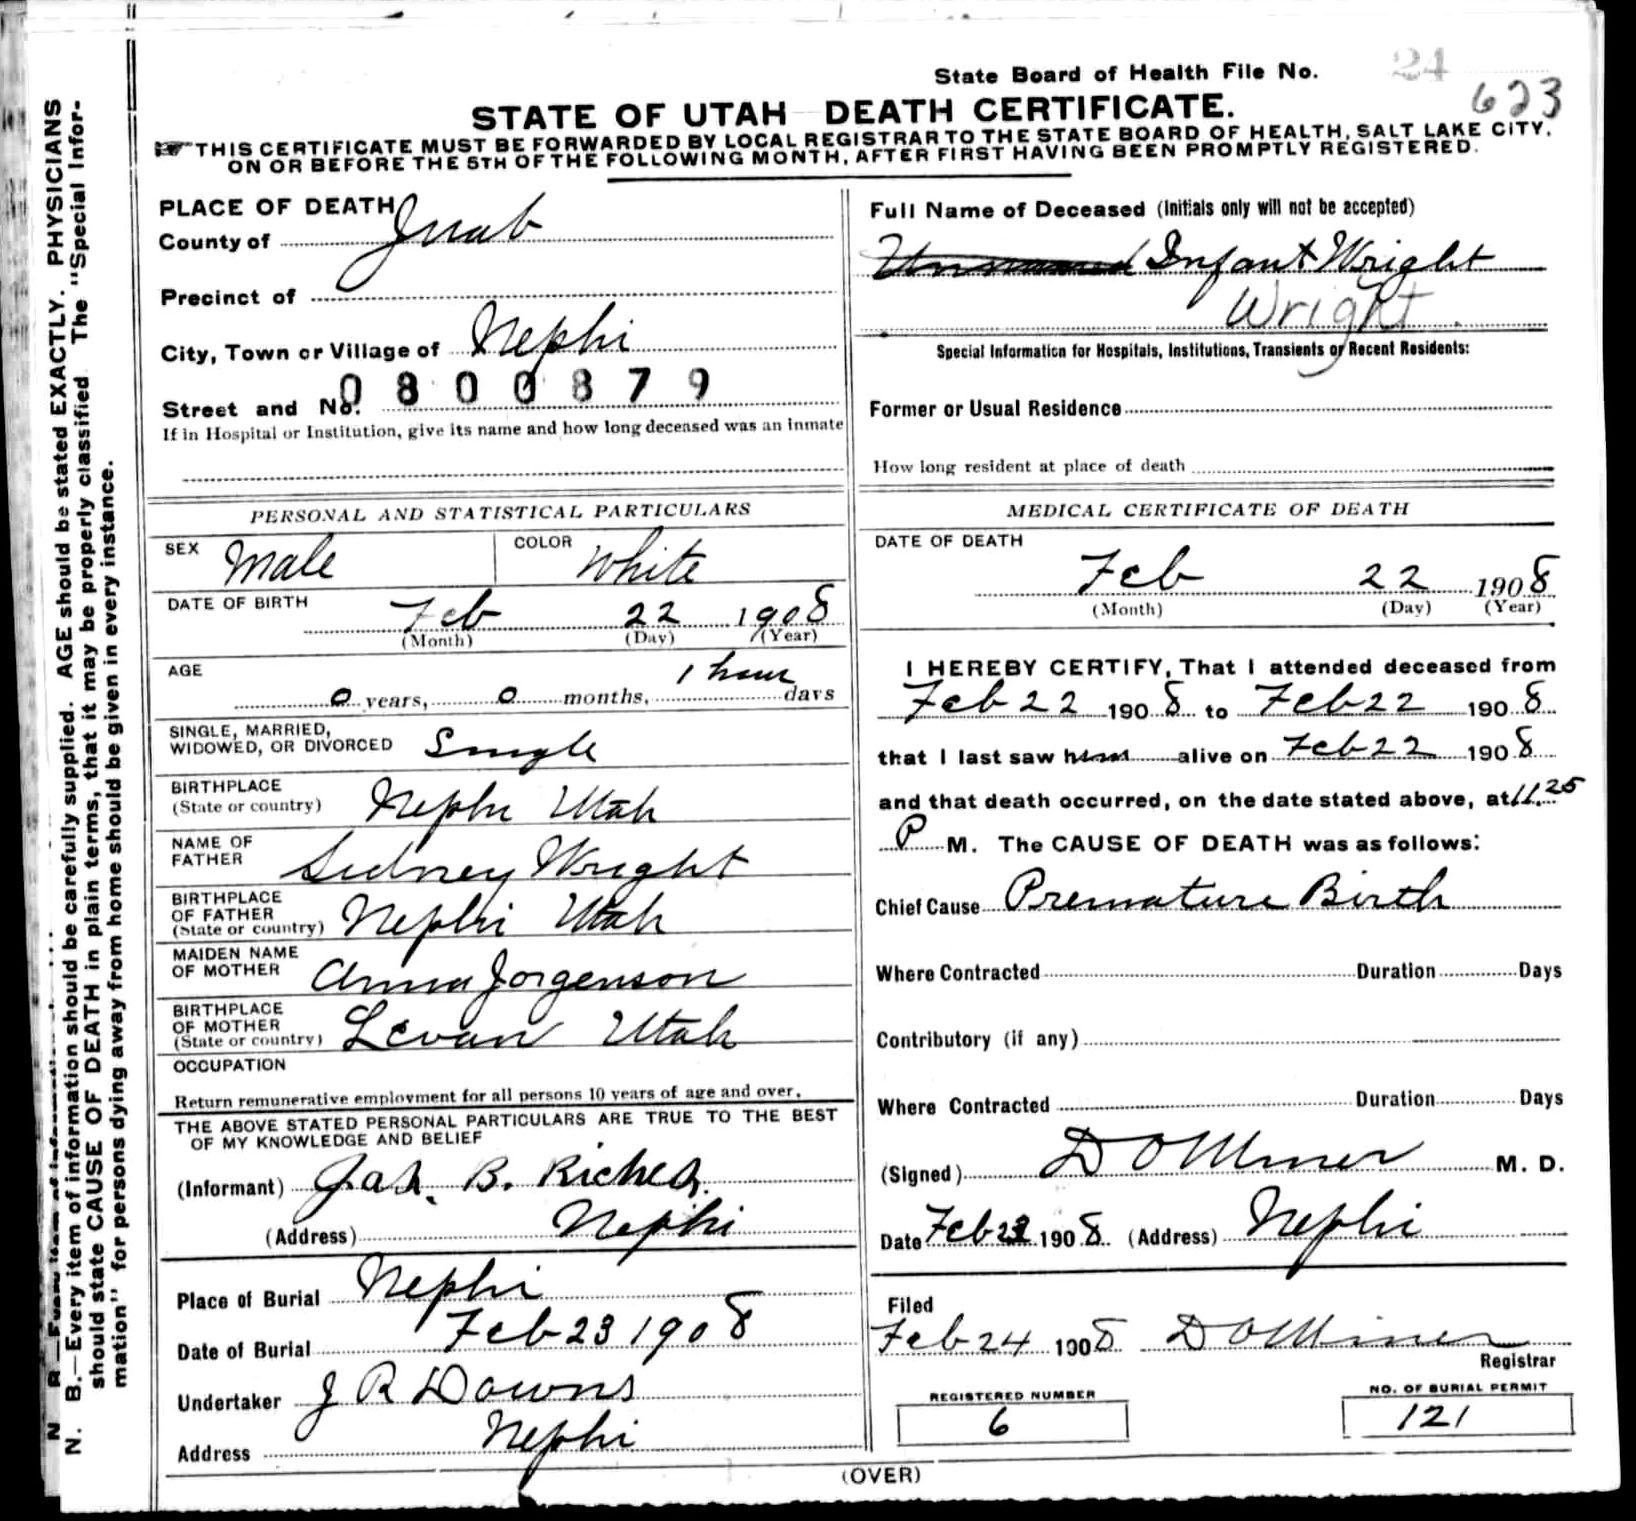 State Board of Health File No. 24
623
STATE OF UTAH DEATH CERTIFICATE.
THIS CERTIFICATE MUST BE FORWARDED BY LOCAL REGISTRAR TO THE STATE BOARD OF HEALTH, SALT LAKE CITY,
ON OR BEFORE THE 5TH OF THE FOLLOWING MONTH, AFTER FIRST HAVING BEEN PROMPTLY REGISTERED.
N. B.—Every item of information should be carefully supplied. AGE should be stated EXACTLY. PHYSICIANS
should state CAUSE OF DEATH in plain terms, that it may be properly classified The "Special Infor-
mation" for persons dying away from home should be given in every instance.
PLACE OF DEATH
County of Juab
Precinct of
City, Town or Village of Nephi
0800879
Street and No.
If in Hospital or Institution, give its name and how long deceased was an inmate
Full Name of Deceased (Initials only will not be accepted)
Infant Wright
Wright
Special Information for Hospitals, Institutions, Transients or Recent Residents:
Former or Usual Residence
How long resident at place of death
PERSONAL AND STATISTICAL PARTICULARS
SEX Male COLOR White
DATE OF BIRTH Feb 22 1908
(Month) (Day) (Year)
AGE 1 hour
0 years, 0 months, days
SINGLE, MARRIED,
WIDOWED, OR DIVORCED Single
BIRTHPLACE
(State or country) Nephi Utah
NAME OF
FATHER Sidney Wright
BIRTHPLACE
OF FATHER
(State or country) Nephi Utah
MAIDEN NAME
OF MOTHER Anna Jorgenson
BIRTHPLACE
OF MOTHER
(State or country) Levan Utah
OCCUPATION
Return remunerative employment for all persons 10 years of age and over.
THE ABOVE STATED PERSONAL PARTICULARS ARE TRUE TO THE BEST
OF MY KNOWLEDGE AND BELIEF
(Informant) Jas. B. Riches.
(Address) Nephi
Place of Burial Nephi
Date of Burial Feb 23 1908
Undertaker J R Downs
Address Nephi
MEDICAL CERTIFICATE OF DEATH
DATE OF DEATH
Feb 22 1908
(Month) (Day) (Year)
I HEREBY CERTIFY, That I attended deceased from
Feb 22 1908 to Feb 22 1908
that I last saw him alive on Feb 22 1908
and that death occurred, on the date stated above, at 11.25
P M. The CAUSE OF DEATH was as follows:
Chief Cause Premature Birth
Where Contracted Duration Days
Contributory (if any)
Where Contracted Duration Days
(Signed) D O Miner M. D.
Date Feb 23 1908. (Address) Nephi
Filed
Feb 24 1908 D O Miner
Registrar
REGISTERED NUMBER
6
NO. OF BURIAL PERMIT
121
(OVER)